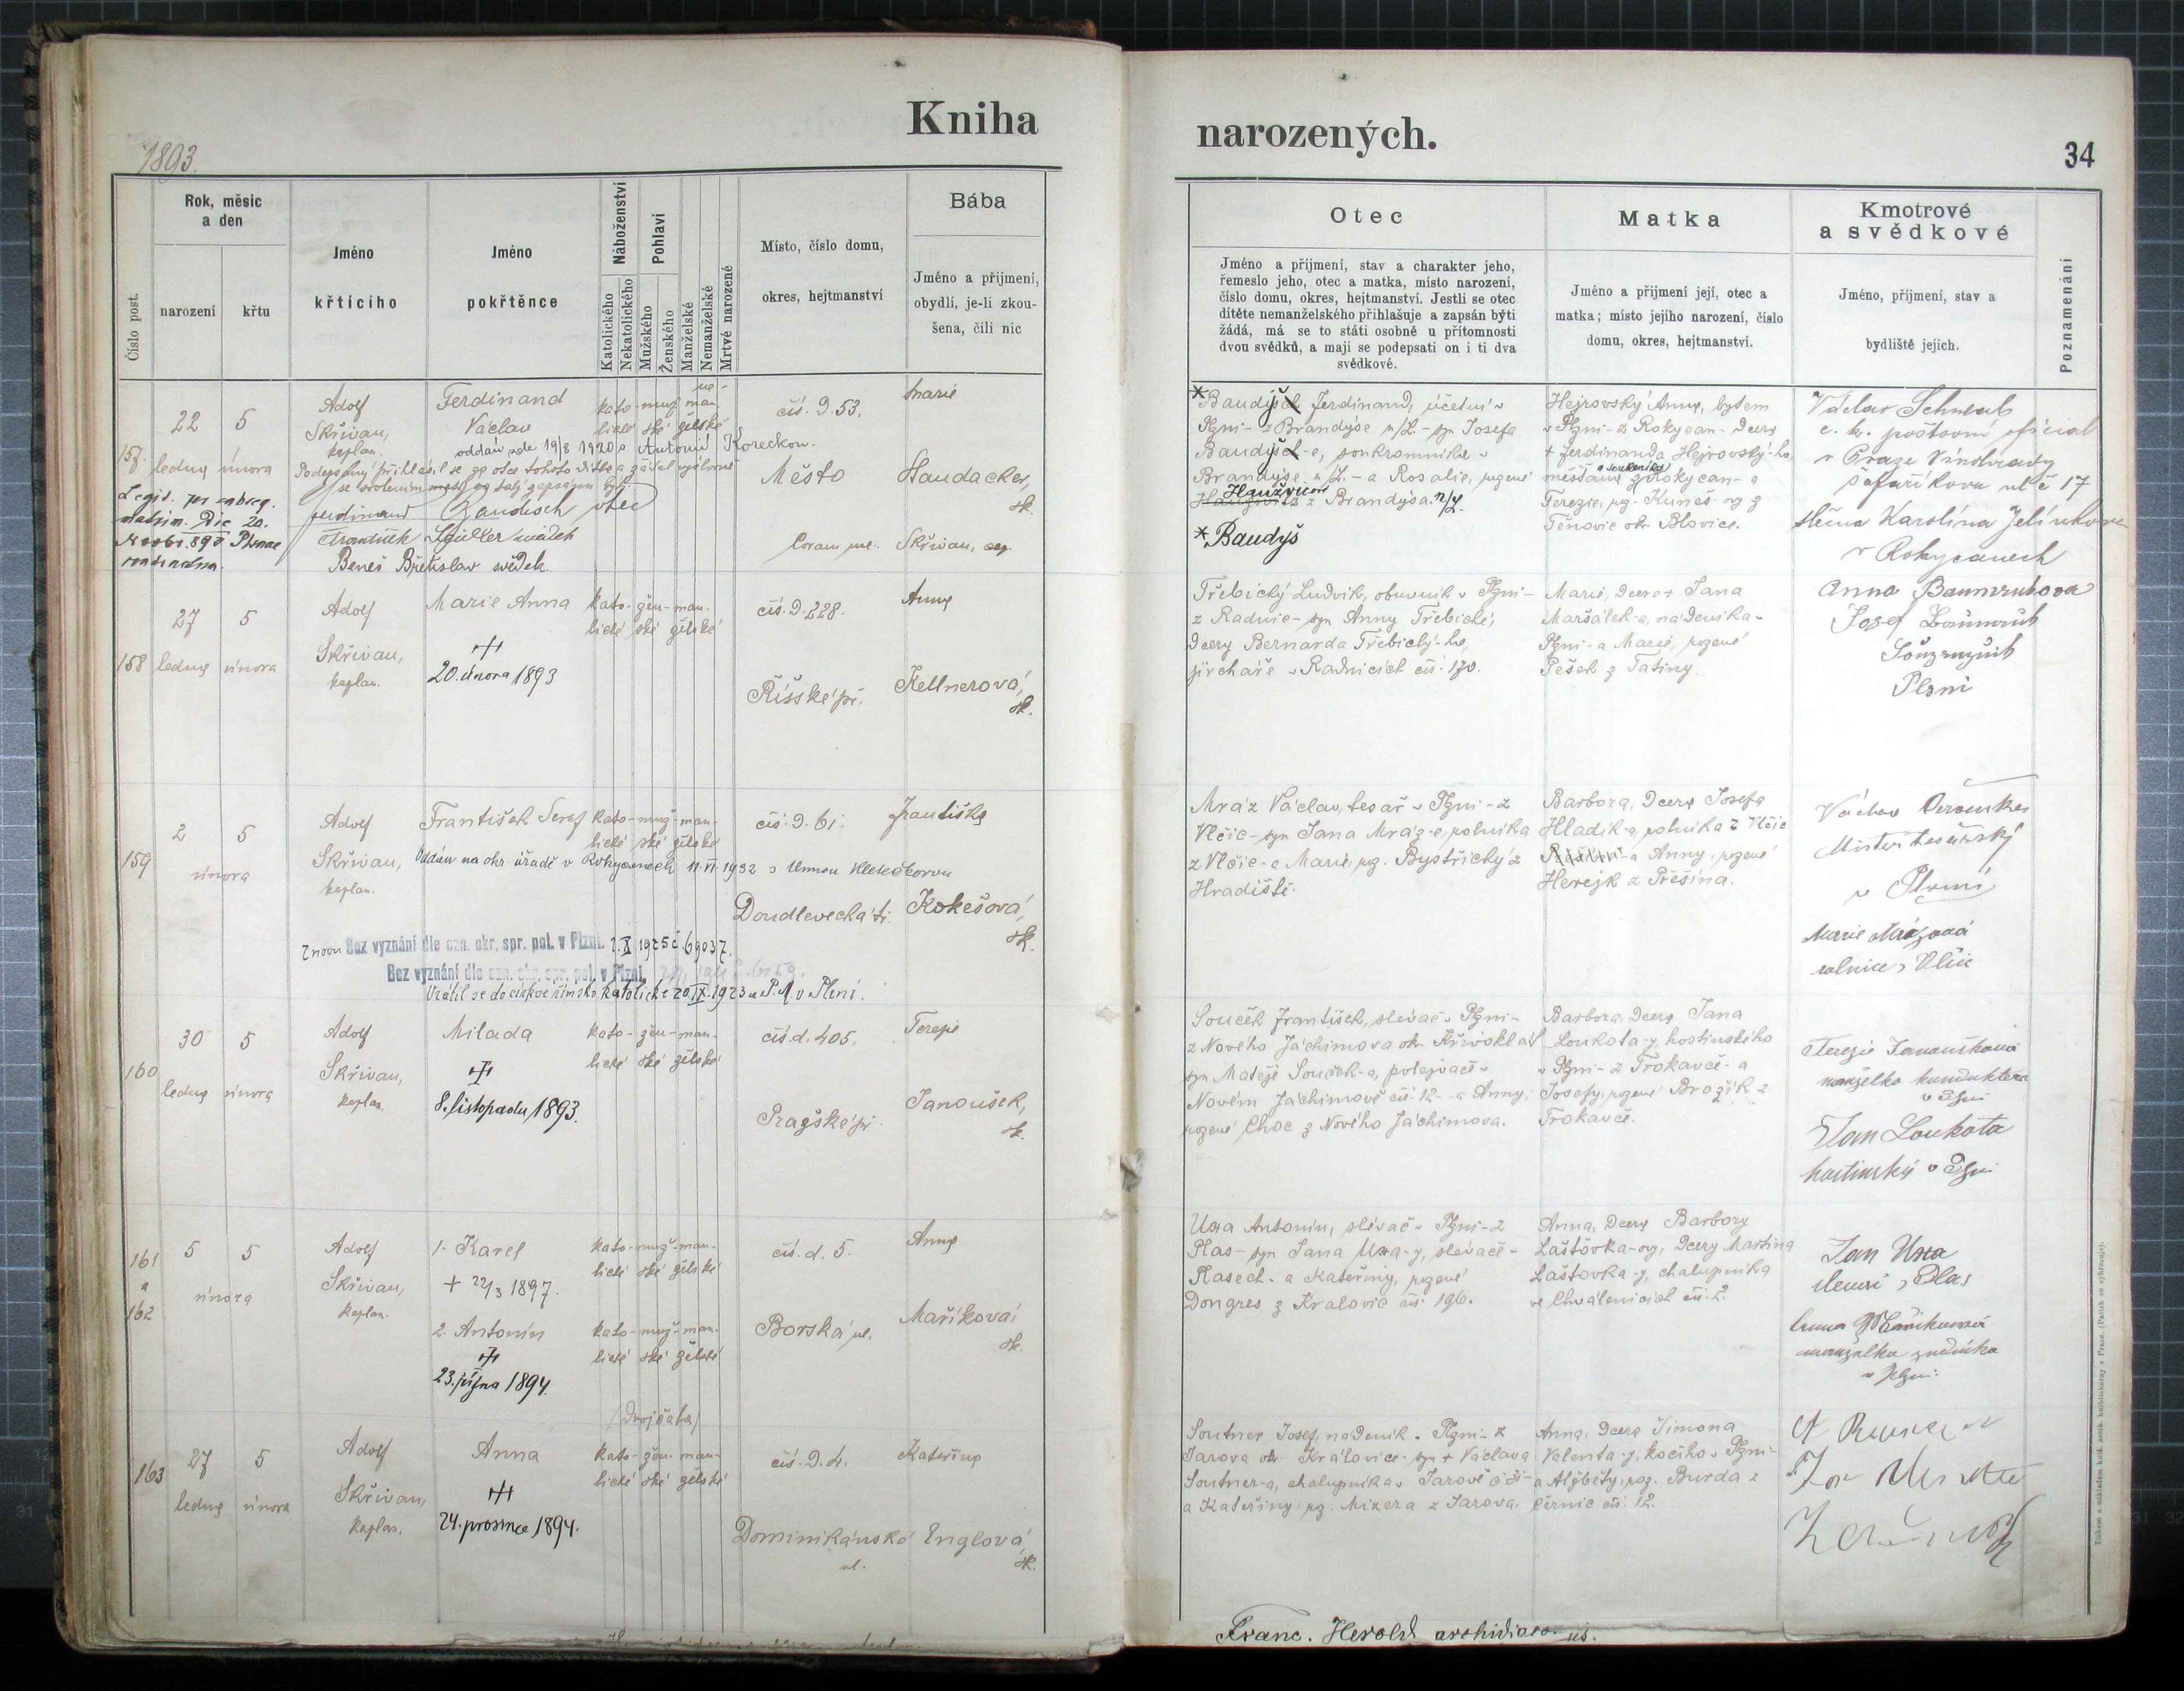 Kniha
narozených.
1893.
34
Číslo post.
Rok, měsíc
a den
narození
křtu
Jméno
křticího
Jméno
pokřtěnce
Náboženství
Katolického
Nekatolického
Pohlaví
Mužského
Ženského
Manželské
Nemanželské
Mrtvě narozené
Místo, číslo domu,
okres, hejtmanství
Bába
Jméno a přijmení,
obydlí, je-li zkou-
šena, čili nic
Otec
Jméno a příjmení, stav a charakter jeho,
řemeslo jeho, otec a matka, místo narození,
číslo domu, okres, hejtmanství. Jestli se otec
dítěte nemanželského přihlašuje a zapsán býti
žádá, má se to státi osobně u přítomnosti
dvou svědků, a mají se podepsati on i ti dva
svědkové.
Matka
Jméno a přijmení její, otec a
matka; místo jejího narození, číslo
domu, okres, hejtmanství.
Kmotrové
a svědkové
Jméno, příjmení, stav a
bydliště jejich.
Poznamenání
157.
22 ledna
5 února
Adolf
Skřivan,
kaplan.
Ferdinand
Václav
kato- muž- man-
lické ské želské
ne-
oddán zde 19/8 1920 s Antonií Koreckou.
čís. d. 53.
Město
Marie
Haudacker,
zk.
Podepsaný přihlásil se za otce tohoto dítka a žádal výslovně
se svolením matky za
Ferdinand Baudisch otec
František svědek
Beneš Břetislav svědek.
Coram me. Skřivan,
Legit. per subseq.
matrim. Die 20.
*Baudyš Ferdinand, účetní v
Plzni - z Brandýse n/L. - syn Josefa
Baudyš-e, soukromníka v
Brandýse n/L. - a Rosalie, rozené
Haužvicové z Brandýsa n/L.
*Baudyš
Hejrovský Anna, bytem
v Plzni - z Rokycan - dcera
+ Ferdinanda Hejrovský-ho,
měšťana a soukeníka z Rokycan - a
Terezie, roz. Kuneš-ov z
Těnovic okr. Blovice.
Václav Schwab
c. k. poštovní oficial
v Praze Vinohrady
Šafaříkova ul č 17
slečna Karolína Jelínkova
v Rokycanech
158
27 ledna
5 února
Adolf
Skřivan,
kaplan.
Marie Anna
20. února 1893
kato- žen- man-
lické ské želské
čís. d. 228.
Říšské př.
Anna
Kellnerová,
zk.
Třebický Ludvík, obuvník v Plzni -
z Radnic - syn Anny Třebické,
dcery Bernarda Třebický-ho,
jircháře v Radnicích čís. 170.
Marie, dcera + Jana
Maršálek-a, nádeníka v
Plzni - a Marie, rozené
Pešek z Tatiny.
Anna Baumrukova
Josef Baumruk
Plzni
159
2 února
5
Adolf
Skřivan,
kaplan.
František Seraf
kato- muž- man-
lické ské želské
Oddán na okr. úřadě v Rokycanech 11.VI.1932 s Annou Kletečkovou
čís. d. 61.
Doudlevecká tř.
Františka
Kokešová,
zk.
Znovu Bez vyznání dle ozn. okr. spr. pol. v Plzni. 2.X.1925 č. 69037.
Bez vyznání dle ozn. okr. spr. pol. v Plzni.
Vrátil se do církve římsko-katolické 20.IX.1923 u P.A. v Plzni.
Mráz Václav, tesař v Plzni - z
Vlčic - syn Jana Mráz-e, rolníka
z Vlčic - a Marie, roz. Bystřický z
Hradiště.
Barbora, dcera Josefa
Hladík-a, rolníka z Vlčic
- a Anny, rozené
Herejk z Přešína.
Václav
Mistr tesařský
v Plzni
Marie Mrázová
rolnice z Vlčic
160
30 ledna
5 února
Adolf
Skřivan,
kaplan.
Milada
8. listopadu 1893.
kato- žen- man-
lické ské želské
čís. d. 405.
Pražské př.
Terezie
Janoušek,
zk.
Souček František, slévač v Plzni -
z Nového Jáchimova okr. Křivoklát
syn Matěje Souček-a, polejvače v
Novém Jáchimově čís. 12 - a Anny,
rozené Choc z Nového Jáchimova.
Barbora, dcera Jana
Loukota-y, hostinského
v Plzni - z Trokavče - a
Josefy, rozené Brožík z
Trokavče.
Terezie Janoušková
manželka konduktera
v Plzni
Jan Loukota
hostinský v Plzni
161
a
162
5 února
5
Adolf
Skřivan,
kaplan.
1. Karel
+ 22/3 1897.
2. Antonín
23. října 1894.
kato- muž- man-
lické ské želské
kato- muž- man-
lické ské želské
/Dvojčata/
čís. d. 5.
Borská ul.
Anna
Maříková,
zk.
Uxa Antonín, slévač v Plzni - z
Plas - syn Jana Uxa-y, slévače v
Plasech - a Kateřiny, rozené
Dongres z Kralovic čís. 196.
Anna, dcera Barbory
Laštovka-ov, dcery Martina
Laštovka-y, chalupníka
ve Chválenicích čís. 2.
Jan Uxa
z Plas
Anna Maříková
manželka zedníka
v Plzni.
163
27 ledna
5 února
Adolf
Skřivan,
kaplan.
Anna
24. prosince 1894.
kato- žen- man-
lické ské želské
čís. d. 4.
Dominikánská
ul.
Kateřina
Englová,
zk.
Soutner Josef, nádeník v Plzni - z
Jarova okr. Královice - syn + Václava
Soutner-a, chalupníka v Jarově č 31 -
a Kateřiny roz. Mizera z Jarova.
Anna, dcera Šimona
Valenta-y, kočího v Plzni -
a Alžběty, roz. Burda z
Černic čís. 12.
Franc. Herold archidiaconus.